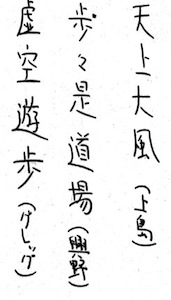 天上大風(上島)
歩々是道場(興野)
虚空遊歩(グレッグ)